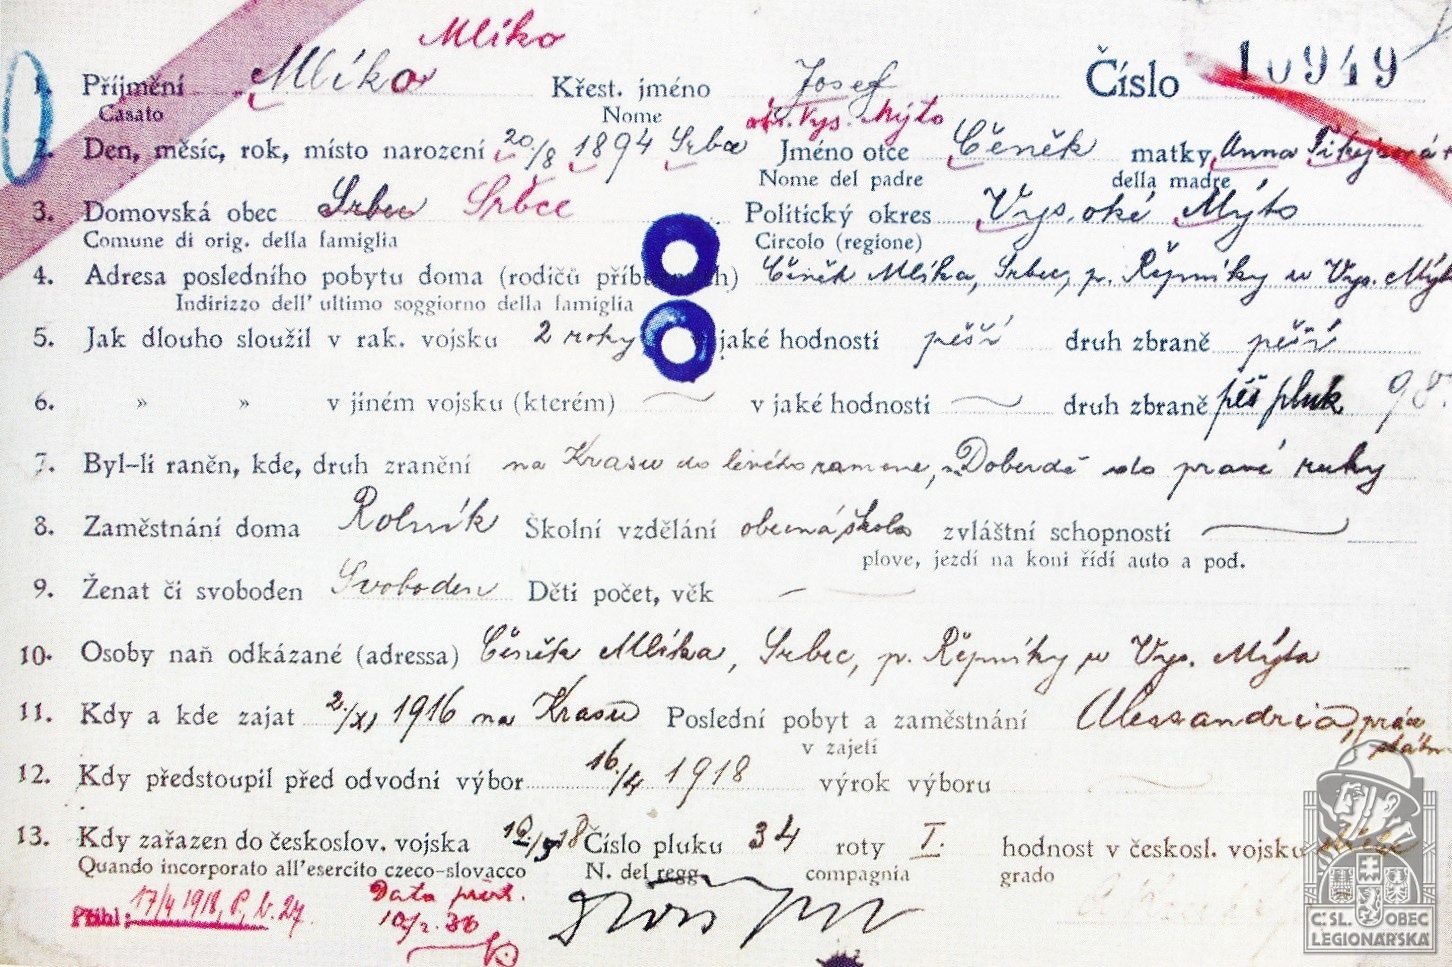 Mlíko
1. Příjmení Mlíko Křest. jméno Josef Číslo 10949
Casato Nome okr. Vys. Mýto
2. Den, měsíc, rok, místo narození 20/8 1894 Srbce Jméno otce Čeněk matky Anna
Nome del padre della madre
3. Domovská obec Srbce Srbce Politický okres Vysoké Mýto
Comune di orig. della famiglia Circolo (regione)
4. Adresa posledního pobytu doma (rodičů příb h) Čeněk Mlíka, Srbec, p. Řepníky u Vys. Mýt
Indirizzo dell' ultimo soggiorno della famiglia
5. Jak dlouho sloužil v rak. vojsku 2 roky jaké hodnosti pěší druh zbraně pěší
6. » » v jiném vojsku (kterém) v jaké hodnosti druh zbraně pěš pluk 98.
7. Byl-li raněn, kde, druh zranění na Krasu do levého ramene, u Doberdě do pravé ruky
8. Zaměstnání doma Rolník Školní vzdělání obecná škola zvláštní schopnosti
plove, jezdí na koni řídí auto a pod.
9. Ženat či svoboden Svoboden Děti počet, věk –
10. Osoby naň odkázané (adressa) Čeněk Mlíka, Srbec, p. Řepníky u Vys. Mýta
11. Kdy a kde zajat 2/XI 1916 na Krasu Poslední pobyt a zaměstnání Alessandria, práce
v zajetí
12. Kdy předstoupil před odvodní výbor 16/4 1918 výrok výboru
13. Kdy zařazen do českoslov. vojska Číslo pluku 34 roty I. hodnost v českosl. vojsku
Quando incorporato all'esercito czeco-slovacco N. del regg. compagnia grado
Přihl: 17/4 1918, P, b. 27. Data přev.
ČSL. OBEC
LEGIONÁŘSKÁ